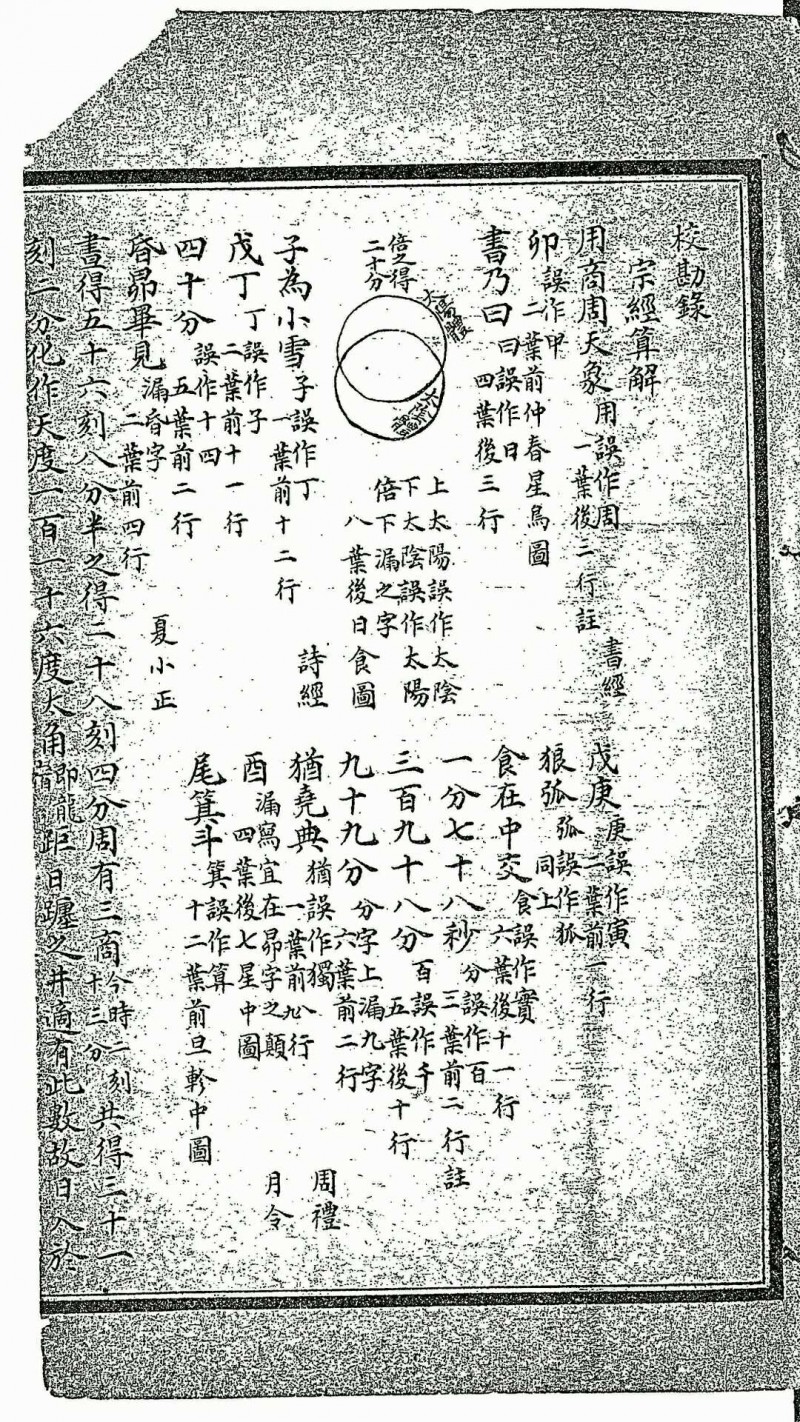 校勘錄
宗經算解
用商周天象 用誤作周 一葉後三行註 書經 戊庚 庚誤作寅 二葉前一行
卯 誤作甲 二葉前仲春星鳥圖 狼弧 弧誤作狐 同上
書乃曰 曰誤作日 四葉後三行 食在中交 食誤作實 六葉後十一行
一分七十八秒 分誤作百 三葉前二行註
倍之得二十分 太陽體 太陰體 上太陽誤作太陰 下太陰誤作太陽 倍下漏之字 八葉後日食圖 三百九十八分 百誤作千 五葉後十行
九十九分 分字上漏九字 六葉前二行
子為小雪 子誤作丁 一葉前十二行 詩經 猶堯典 猶誤作獨 一葉前九八行 周禮
戊丁 丁誤作子 二葉前十一行 酉 漏寫宜在昴字之顛 四葉後七星中圖 月令
四十分 誤作十四 五葉前二行 尾箕斗 箕誤作算 十二葉前旦軫中圖
昏昴畢見 漏昏字 二葉前四行 夏小正
晝得五十六刻八分半之得二十八刻四分周有三商 今時二刻十三分 共得三十一
刻一分化作天度一百一十六度大角 即龍角 距日躔之井適有此數故日入於